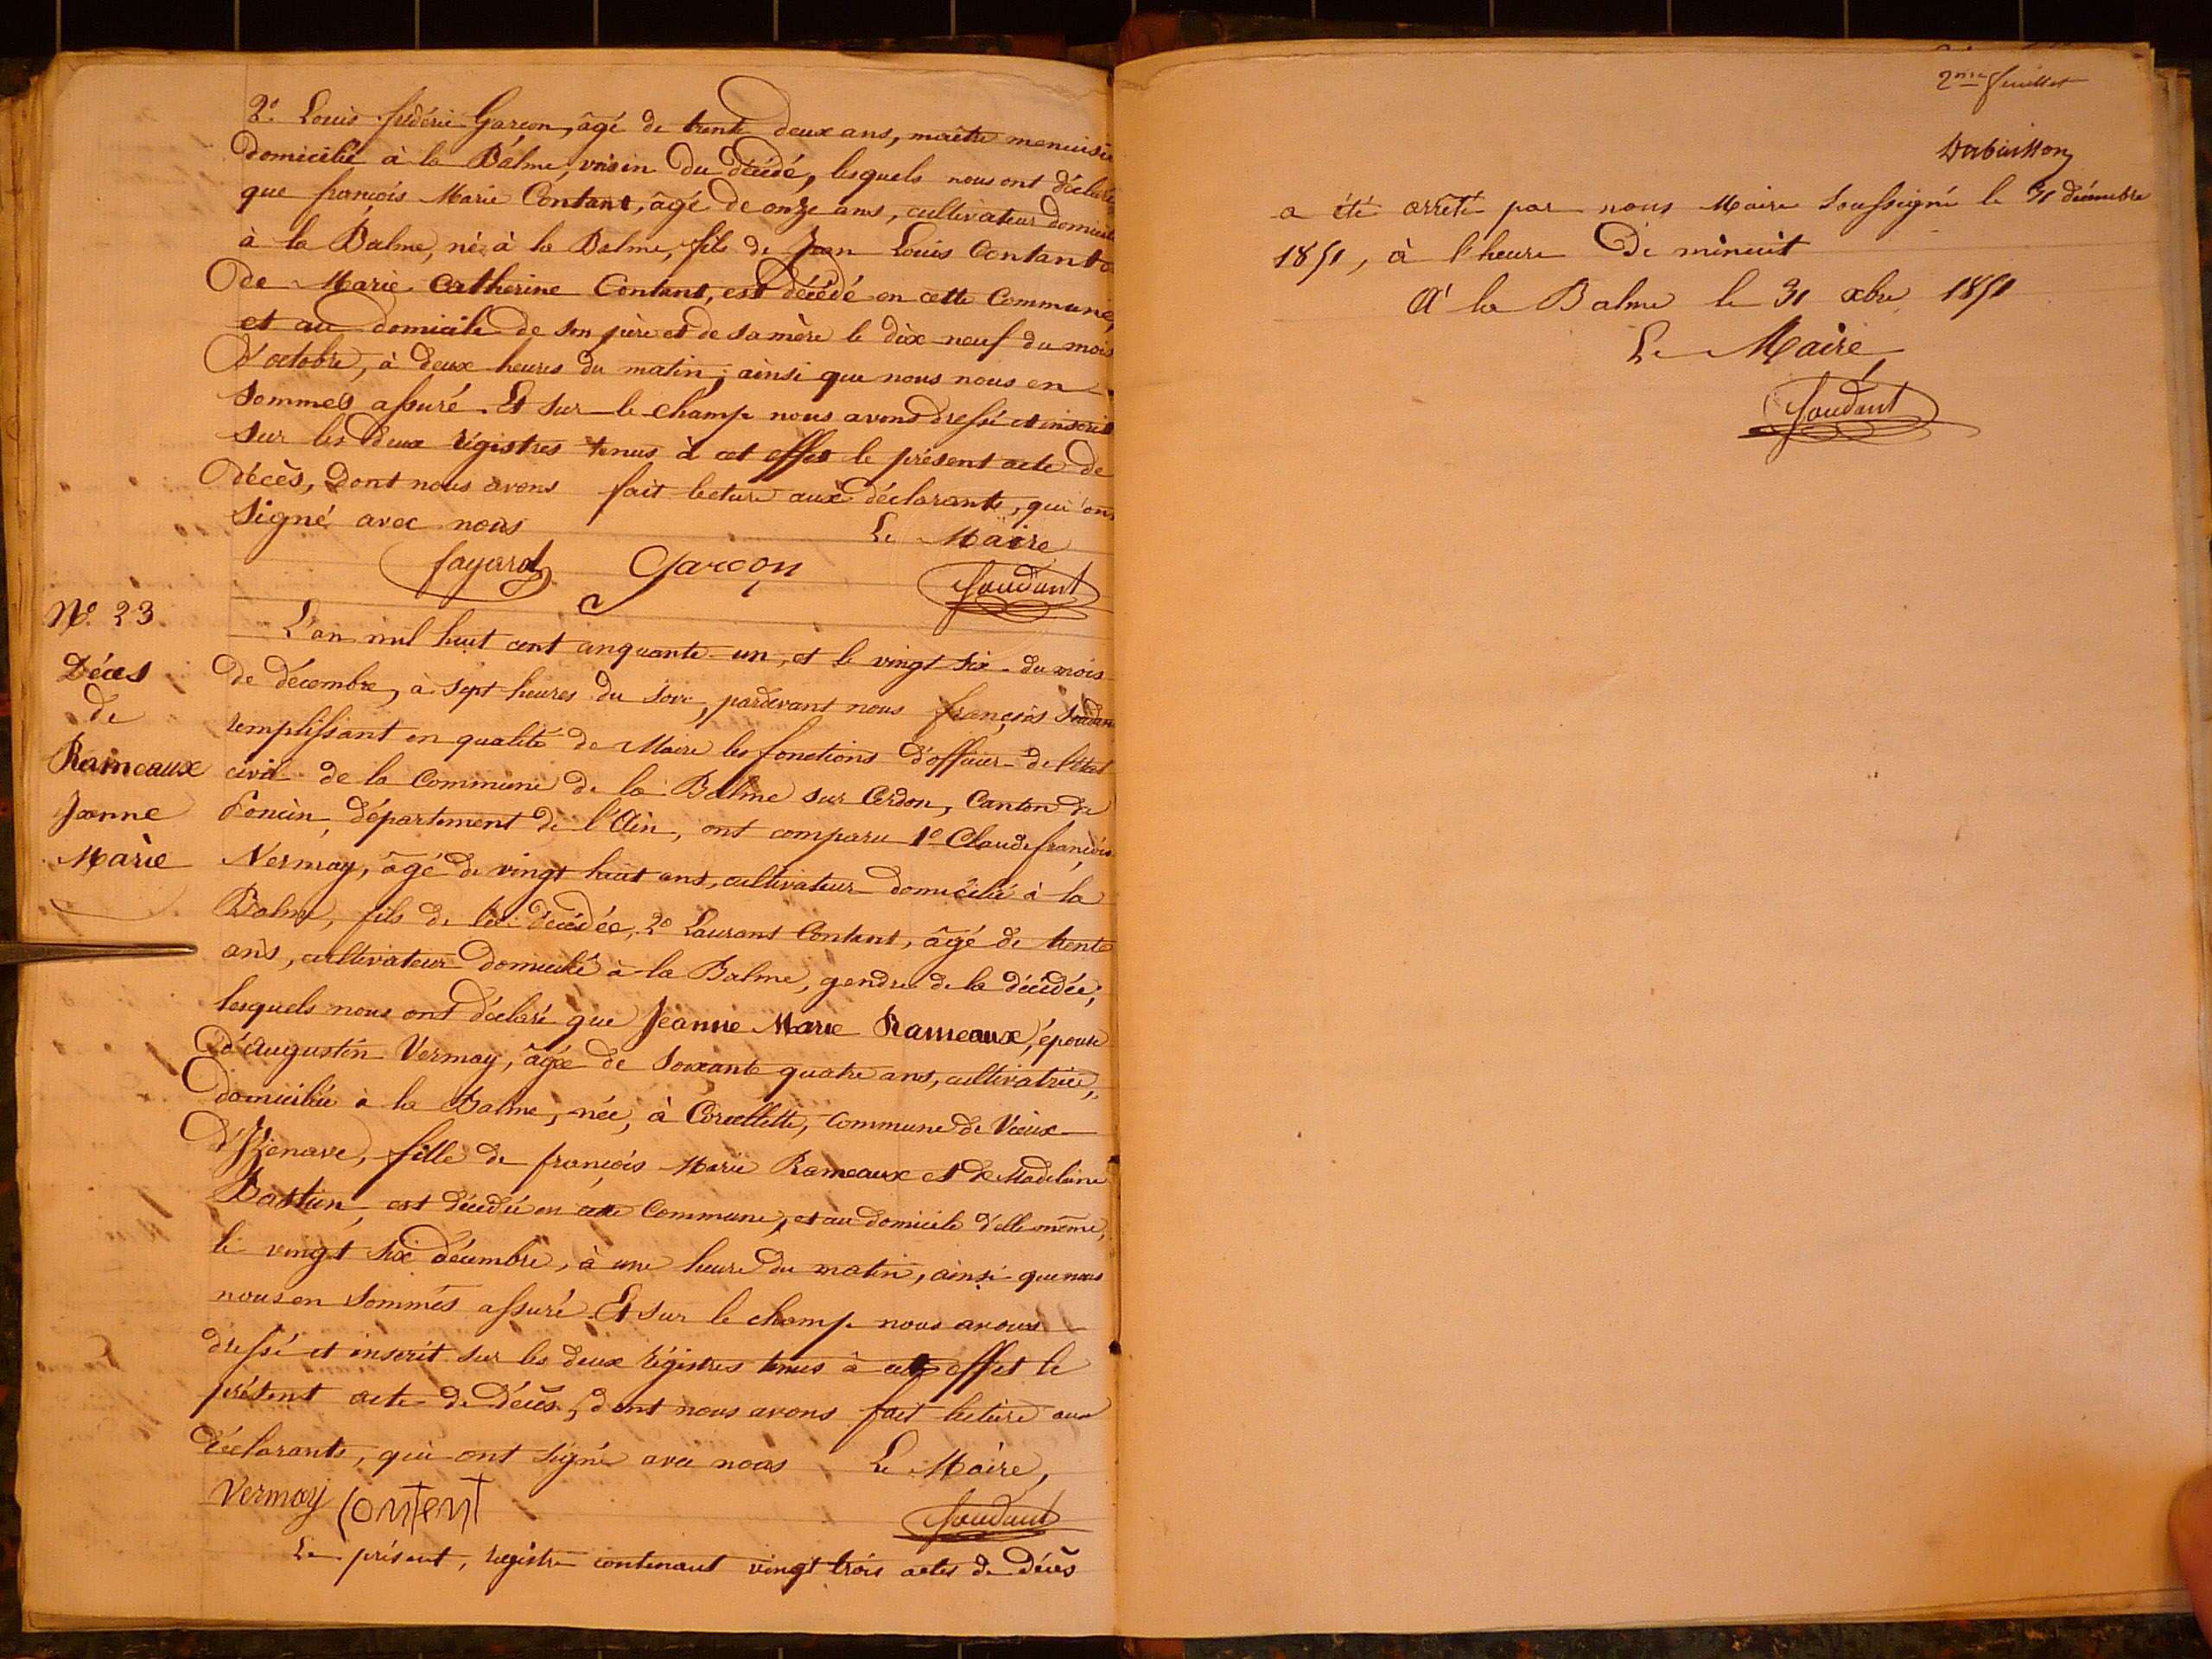 2º Louis frédéric Garcon, âgé de trente deux ans, maître menuisie
domicilié à la Balme, voisin du décédé, lesquels nous ont déclaré
que françois Marie Contant, âgé de onze ans, cultivateur domicilié
à la Balme, né à la Balme, fils de Jean Louis Contant
de Marie Catherine Contant, est décédé en cette Commune,
et au domicile de son père et de sa mère le dix neuf du mois
d'octobre, à deux heures du matin; ainsi que nous nous en
sommes assuré. Et sur le champ nous avons dressé et inscrit
sur les deux régistres tenus à cet effet le présent acte de
décès, dont nous avons fait lecture aux déclarants, qui ont
signé avec nous Le Maire
Garcon Soudant
Nº 23
Décès
de
Rameaux
Jeanne
Marie
L'an mil huit cent cinquante un, et le vingt six du mois
de décembre, à sept heures du soir, pardevant nous françois Soudant
remplissant en qualité de Maire les fonctions d'officier de l'état
civil de la Commune de la Balme sur Cerdon, Canton de
Poncin, département de l'Ain, ont comparu 1º Claude françois
Vermay, âgé de vingt huit ans, cultivateur domicilié à la
Balme, fils de la décédée, 2º Laurant Contant, âgé de trente
ans, cultivateur domicilié à la Balme, gendre de la décédée;
lesquels nous ont déclaré que Jeanne Marie Rameaux, épouse
d'Augustin Vermay, âgée de soixante quatre ans, cultivatrice,
domiciliée à la Balme, née, à Corcellette, commune de Vieux
d'Izenave, fille de françois Marie Rameaux et de Madelaine
Bastien, est décédée en cette Commune, et au domicile d'elle même,
le vingt six décembre, à une heure du matin, ainsi que nous
nous en sommes assuré. Et sur le champ nous avons
dressé et inscrit sur les deux régistres tenus à cet effet le
présent acte de décès, dont nous avons fait lecture aux
déclarants, qui ont signé avec nous Le Maire,
Vermay Content Soudant
Le présent, registre contenant vingt trois actes de décès
2me feuillet
Dubuisson
a été arrêté par nous Maire soussigné le 31 décembre
1851, à l'heure de minuit
A la Balme le 31 xbre 1851
Le Maire
Soudant